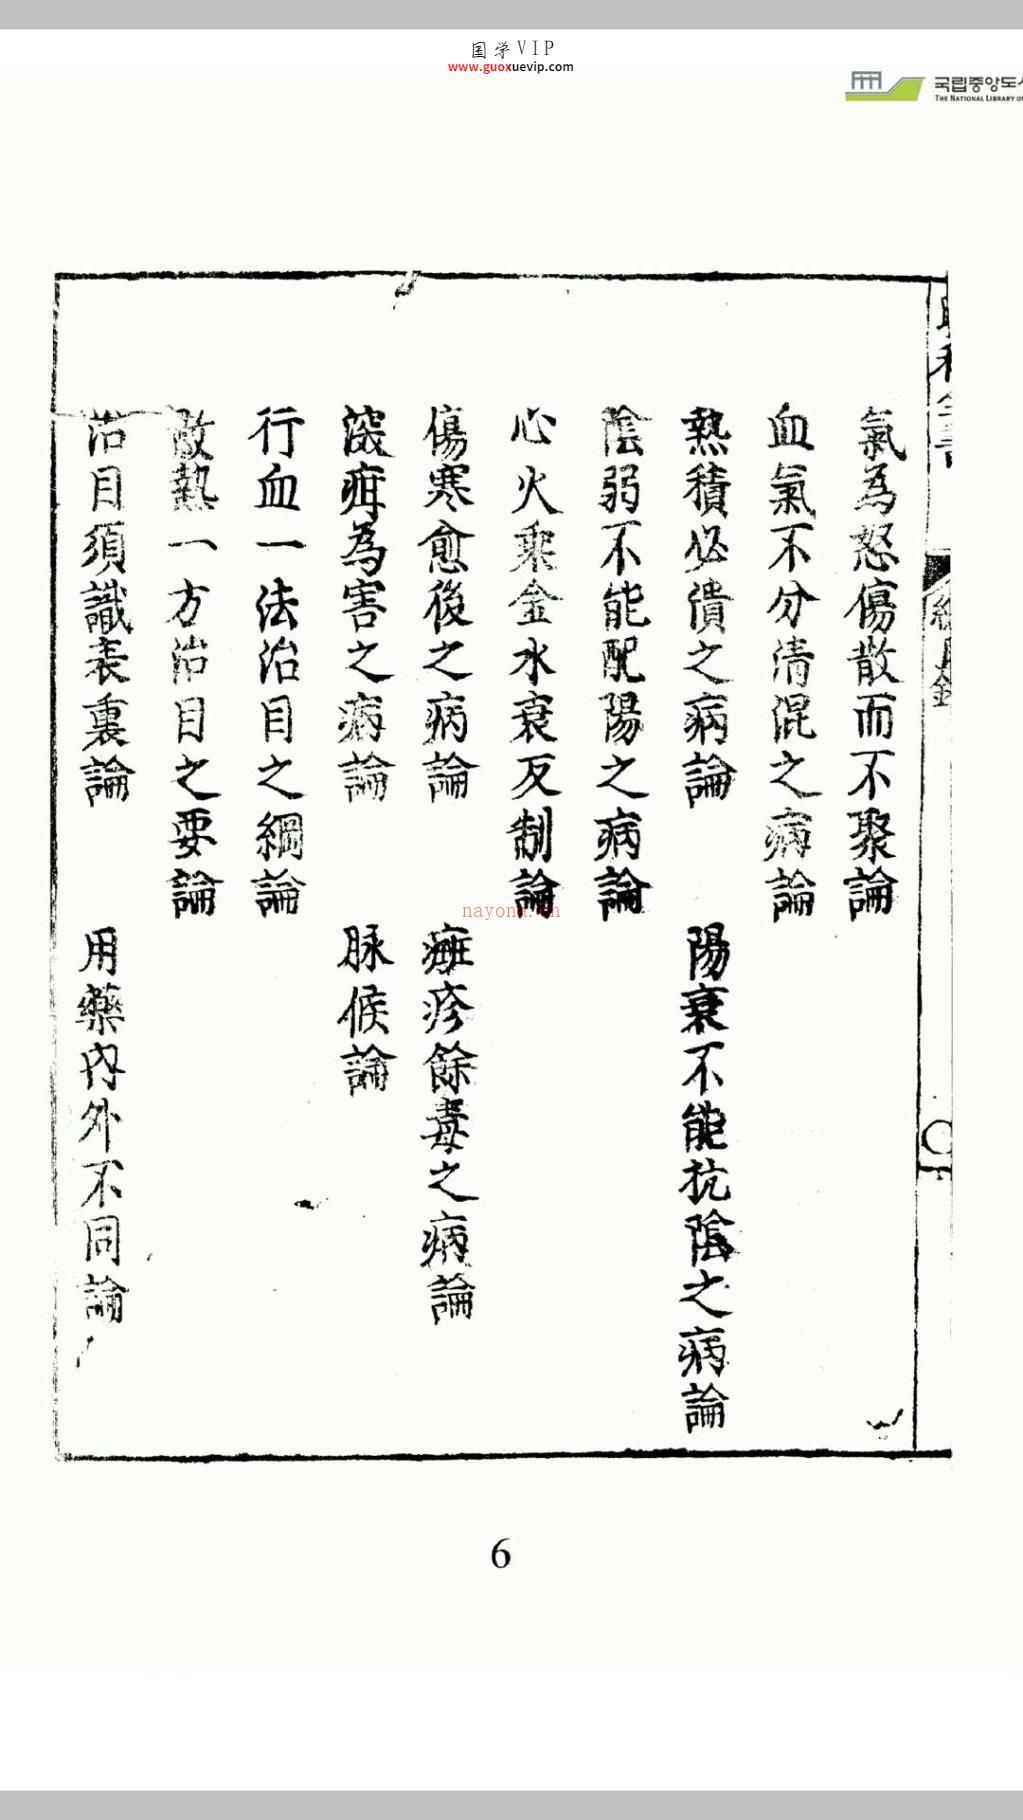 国学VIP
www.guoxuevip.com
국립중앙도
THE NATIONAL LIBRARY
總目錄
氣為怒傷散而不聚論
血氣不分清混之病論
熱積必潰之病論 陽衰不能抗陰之病論
陰弱不能配陽之病論
心火乘金水衰反制論
傷寒愈後之病論 㿈疹餘毒之病論
深疳為害之病論 脉候論
行血一法治目之綱論
散熱一方治目之要論
治目須識表裏論 用藥內外不同論
nayona.cn
6